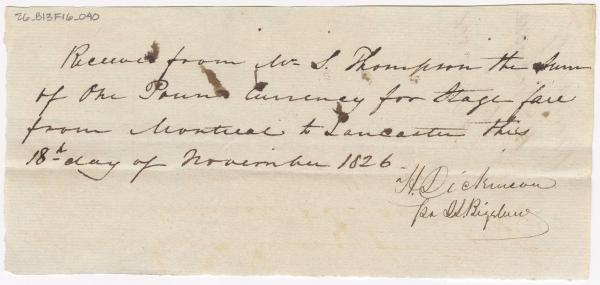 26_B13F16_090
Received from Mr S. Thompson the Sum
of One Pound Currency for Stage fare
from Montreal to Lancaster this
18th day of November 1826
H. Dickinson
pr Bigelow